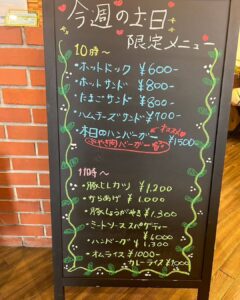 今週の土日
限定メニュー
10時〜
・ホットドック ¥600-
・ホットサンド ¥800-
・たまごサンド ¥800-
・ハムチーズサンド ¥700-
・本日のハンバーガー オススメ ¥1500
バーガー
11時〜
・豚ヒレカツ ¥1,200
・からあげ ¥1,000
・豚しょうがやき ¥1,300
・ミートソーススパゲティー
¥1,000
・ハンバーグ ¥1,300
・オムライス ¥1000-
カレーライス ¥1000